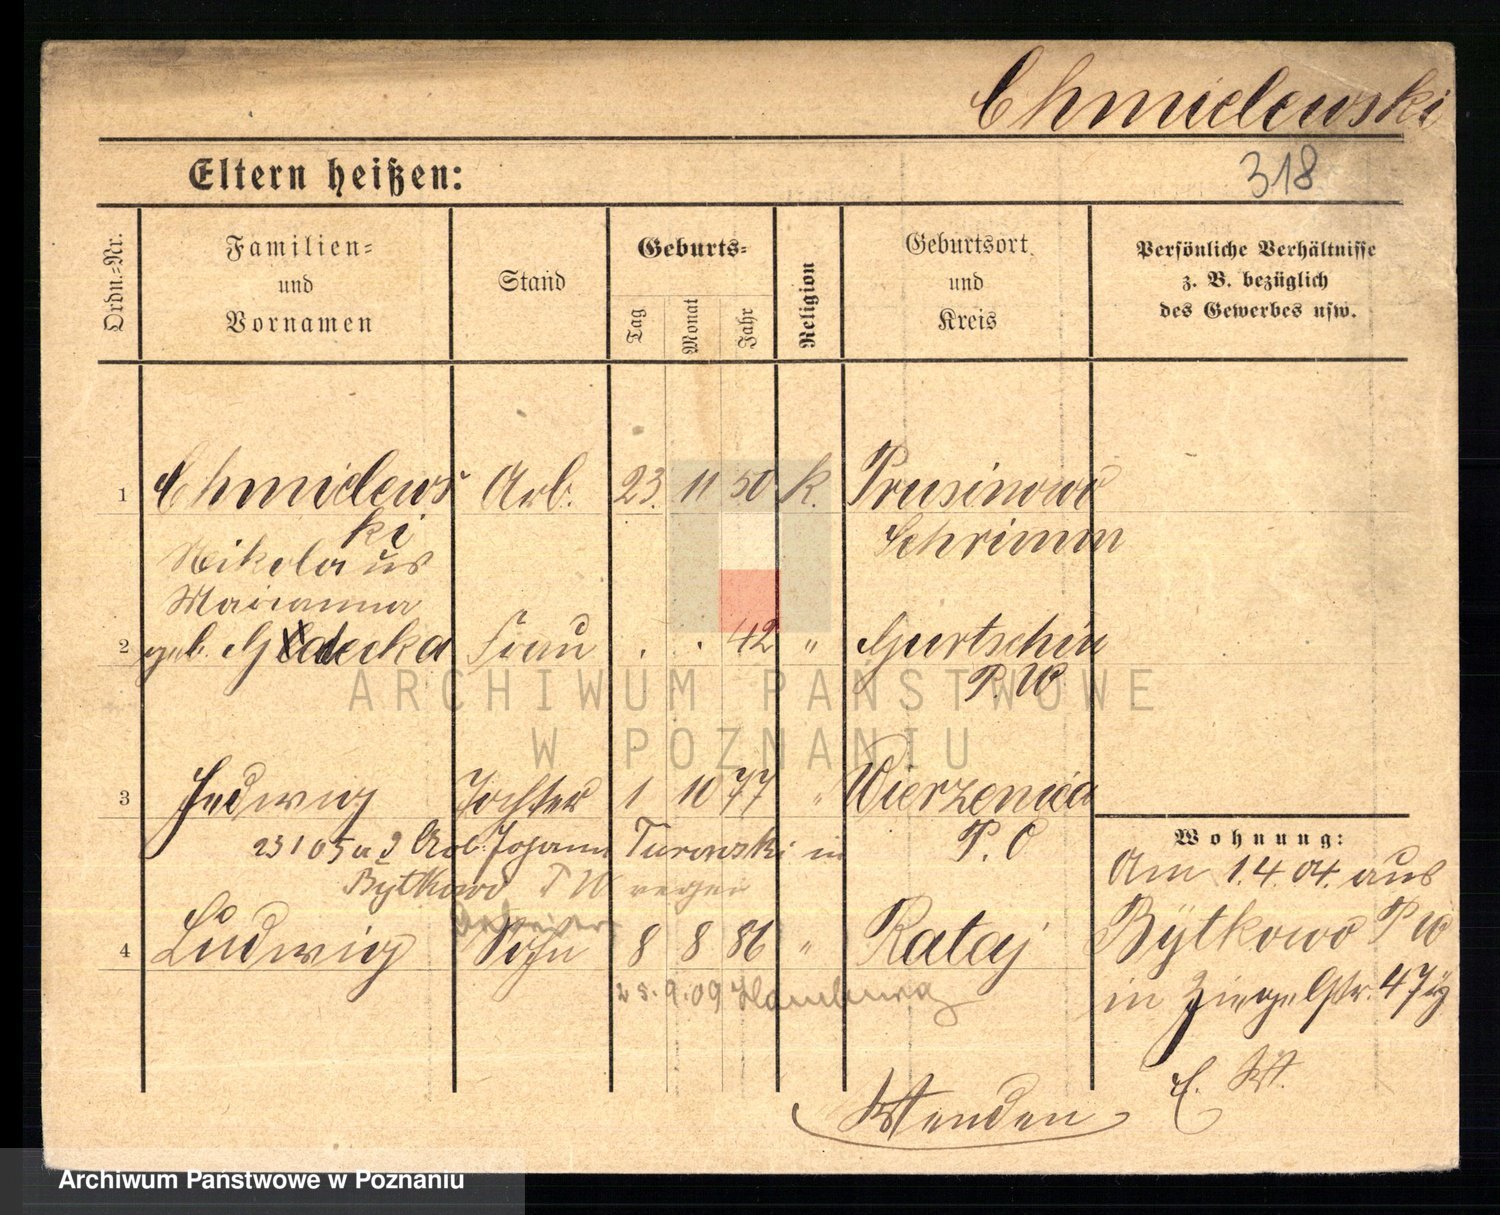 Chmielewski
Eltern heißen:
318
Ordn.=Nr.
Familien=
und
Vornamen
Stand
Geburts=
Tag
Monat
Jahr
Religion
Geburtsort
und
Kreis
Persönliche Verhältnisse
z. B. bezüglich
des Gewerbes usw.
1 Chmielews Arb. 23. 11 50 k. Prusinowo
ki Schrimm
Nikolaus
Marianna
2 geb. Frau . . 42 " Gurtschin
P. W
ARCHIWUM PAŃSTWOWE
W POZNANIU
3 Hedwig Tochter 1 10 77 " Wierzenica
P. O
23 1 05 a/d Arb. Johann Turowski in
Bytkowo P W
Wohnung:
Am 1.4.04. aus
Bytkowo P W
in Ziegelstr. 47
4 Ludwig Sohn 8 8 86 " Rataj
25.9.09 Hamburg
E. W.
Wenden
Archiwum Państwowe w Poznaniu